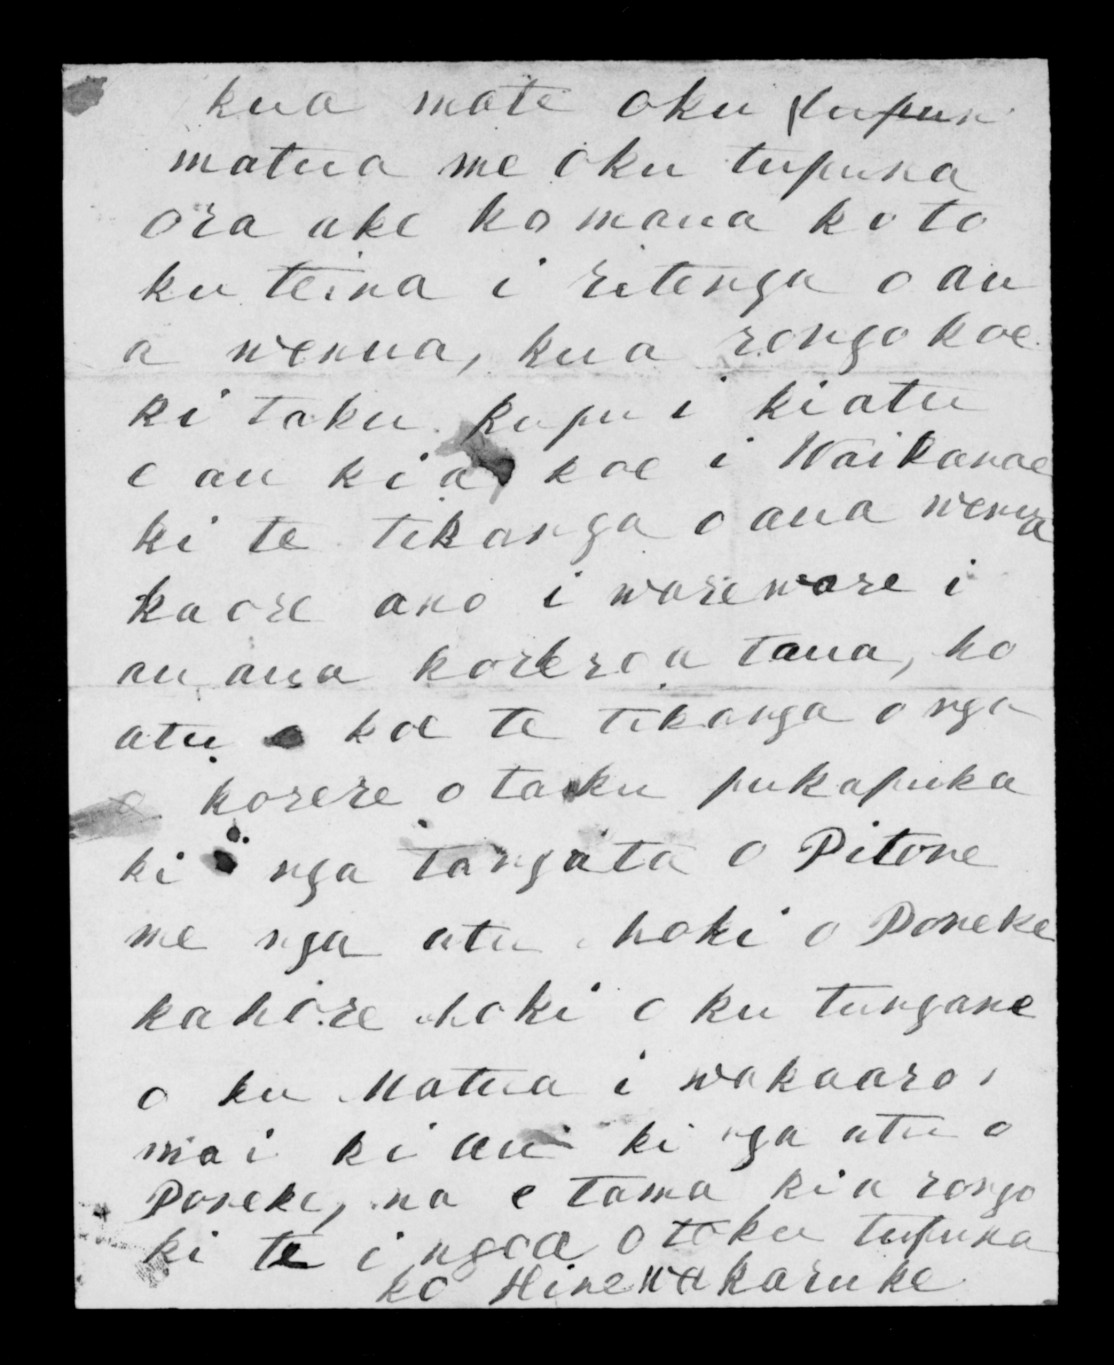 kua mate oku tupun
matua me oku tupuna
ora ake ko maua ko to
ku teina i ritenga o au
a wenua, kua rongo koe
ki taku kupu i kiatu
e au kia koe i Waikanae
ki te tikanga o aua wenua
kaore ano i wareware i
au aua korero a taua, ho
atu e koe te tikanga o nga
korere o taku pukapuka
ki nga tangata o Pitone
me nga atu hoki o Poneke
kahore hoki o ku tungane
o ku Matua i wakaaro
mai ki au ki nga atu o
Poneke, na e tama kia rongo
ki te ingoa o toku tupuna
ko Hinewakaruke